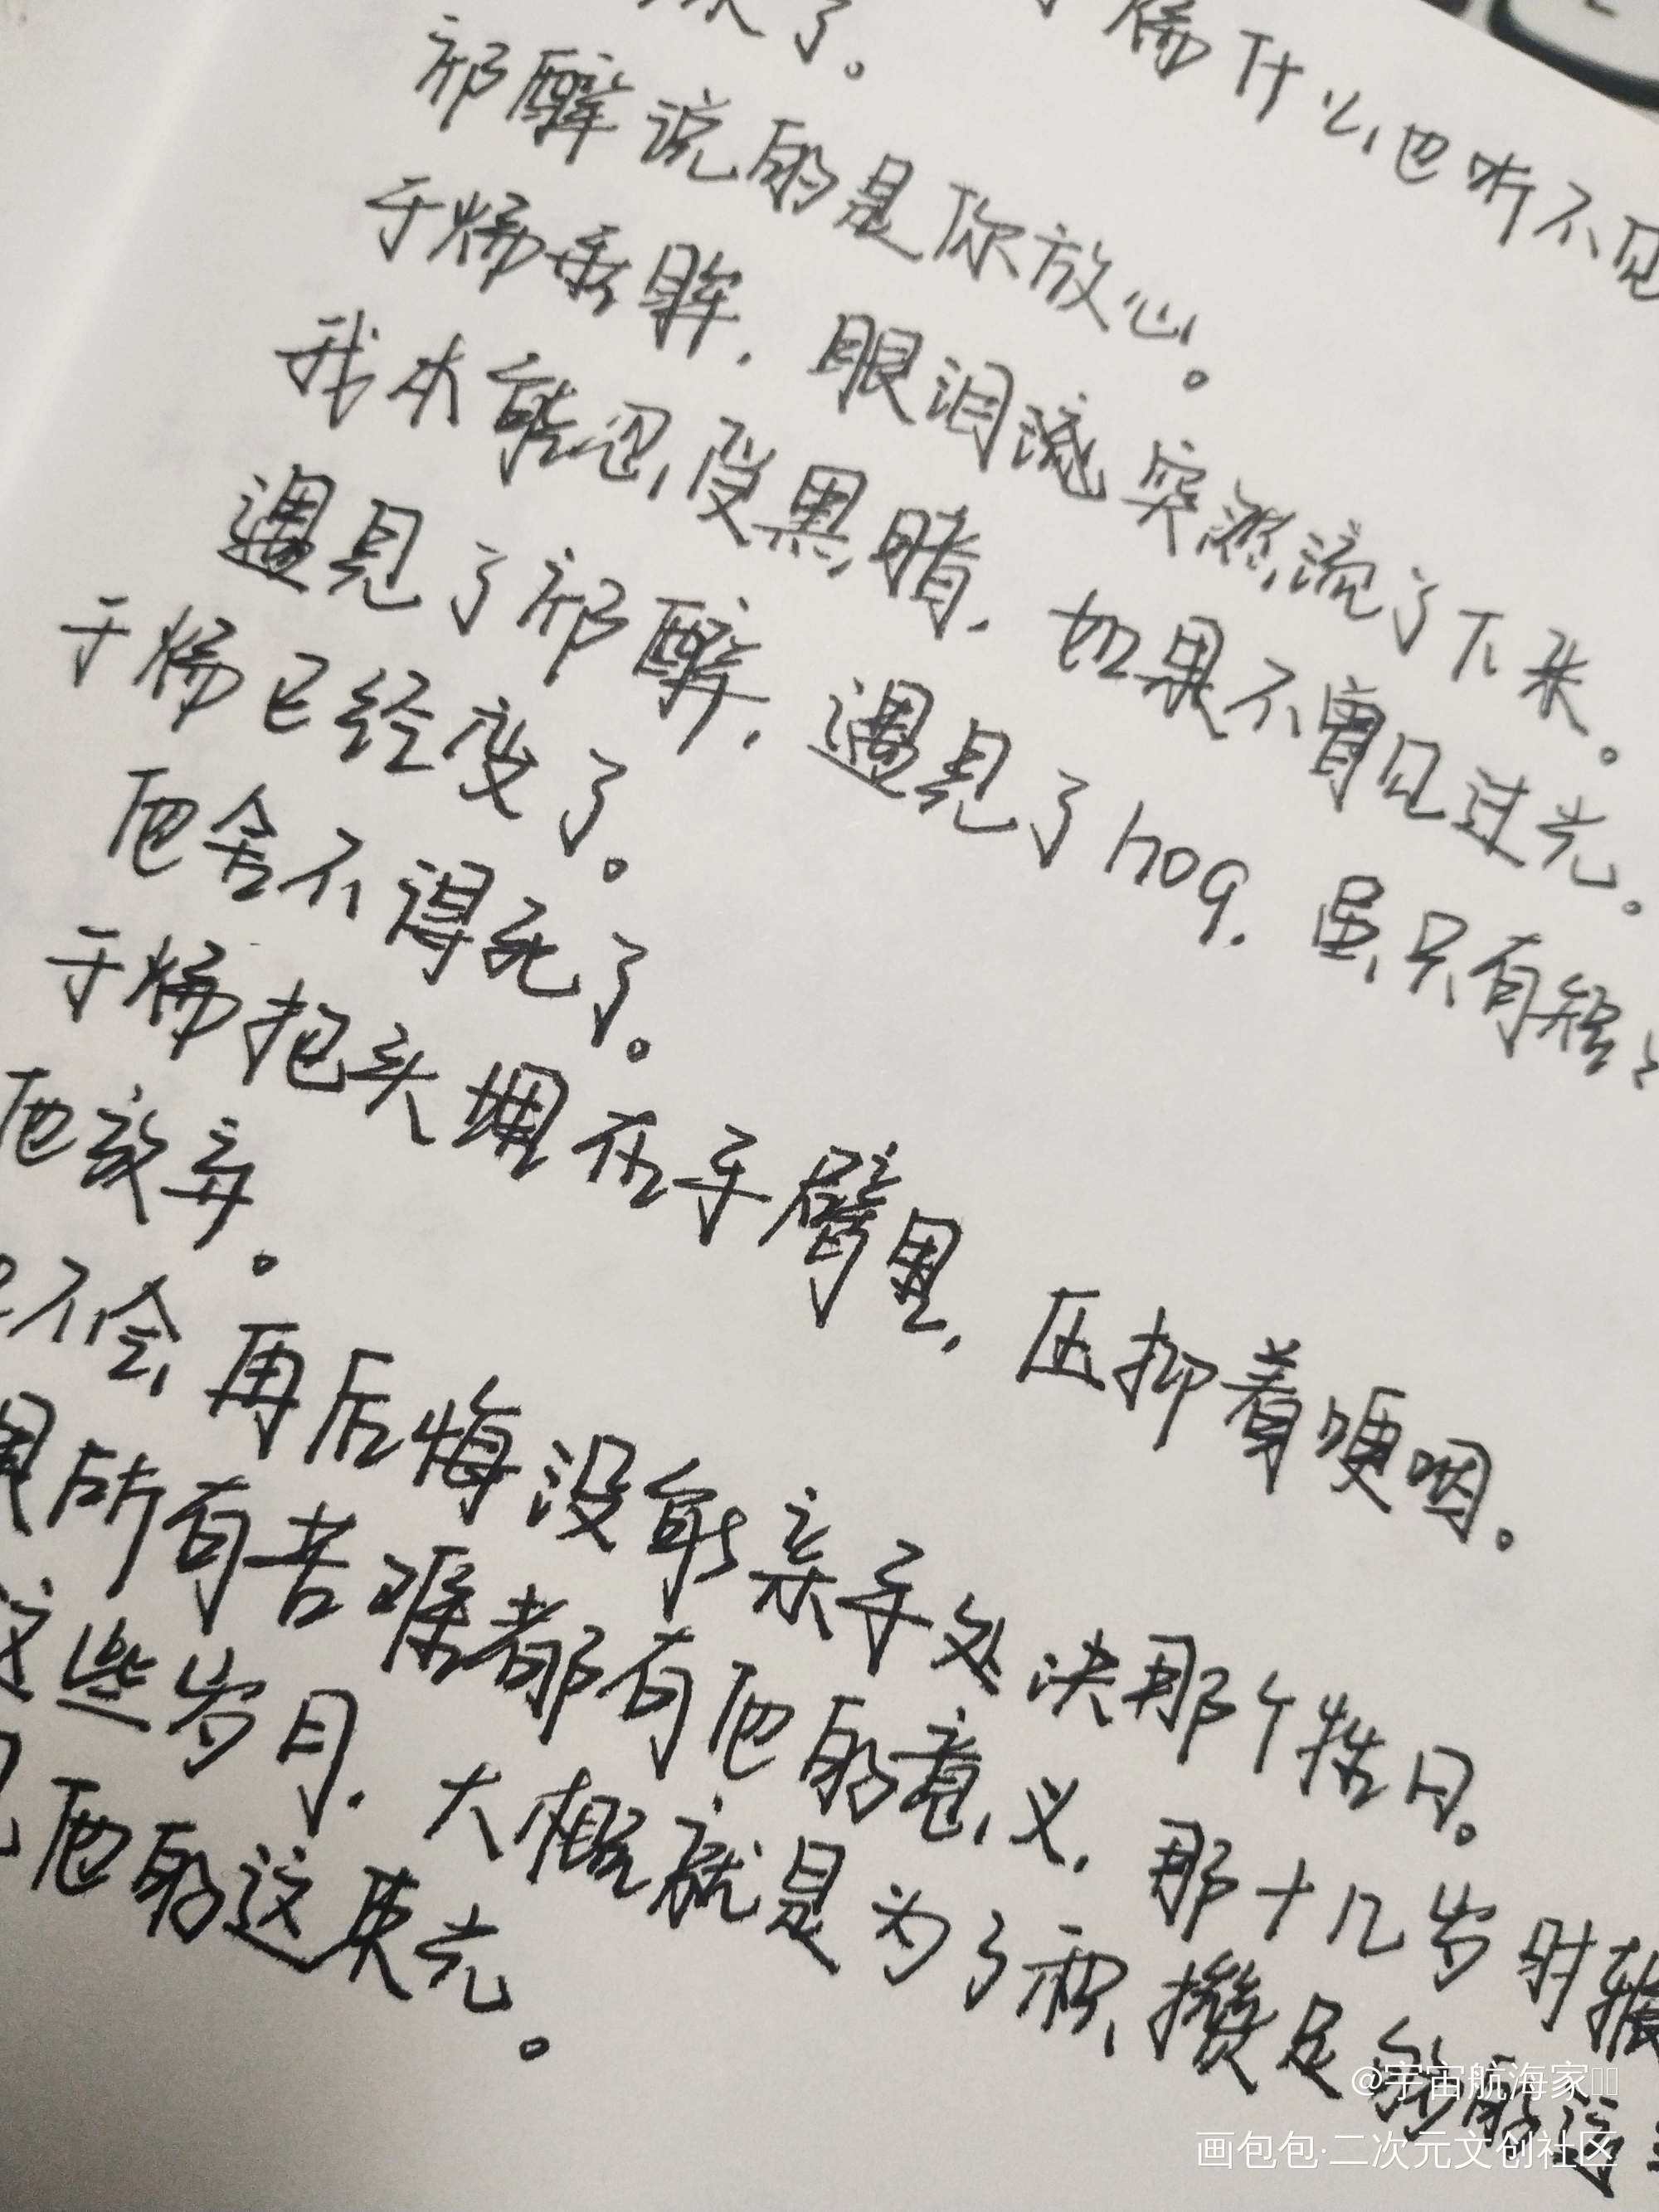 了。
炀什么也听不见
祁醉说的是你放心。
于炀垂眸，眼泪突然流了下来。
我本能忍受黑暗，如果不曾见过光。
遇见了祁醉，遇见了hog，虽只有短
于炀已经变了。
他舍不得死了。
于炀把头埋在手臂里，压抑着哽咽。
他放弃。
不会再后悔没能亲手处决那个牲口。
所有苦难都有他的意义，那十几岁时辗
这些岁月，大概就是为了积攒足够的运
他的这束光。
@宇宙航海家
画包包·二次元文创社区